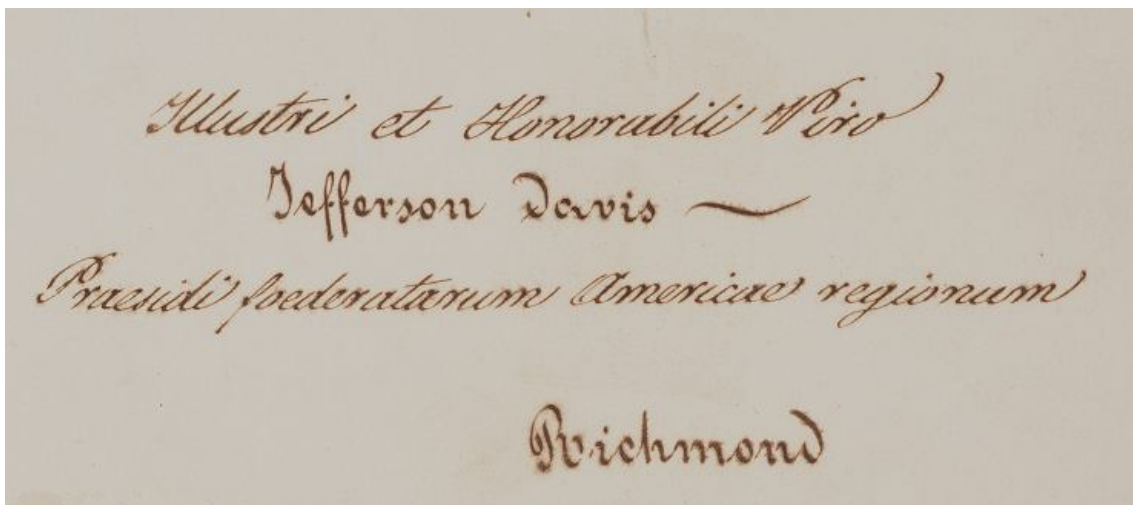 Illustri et Honorabili Viro
Jefferson Davis —
Praesidi foederatarum Americae regionum
Richmond